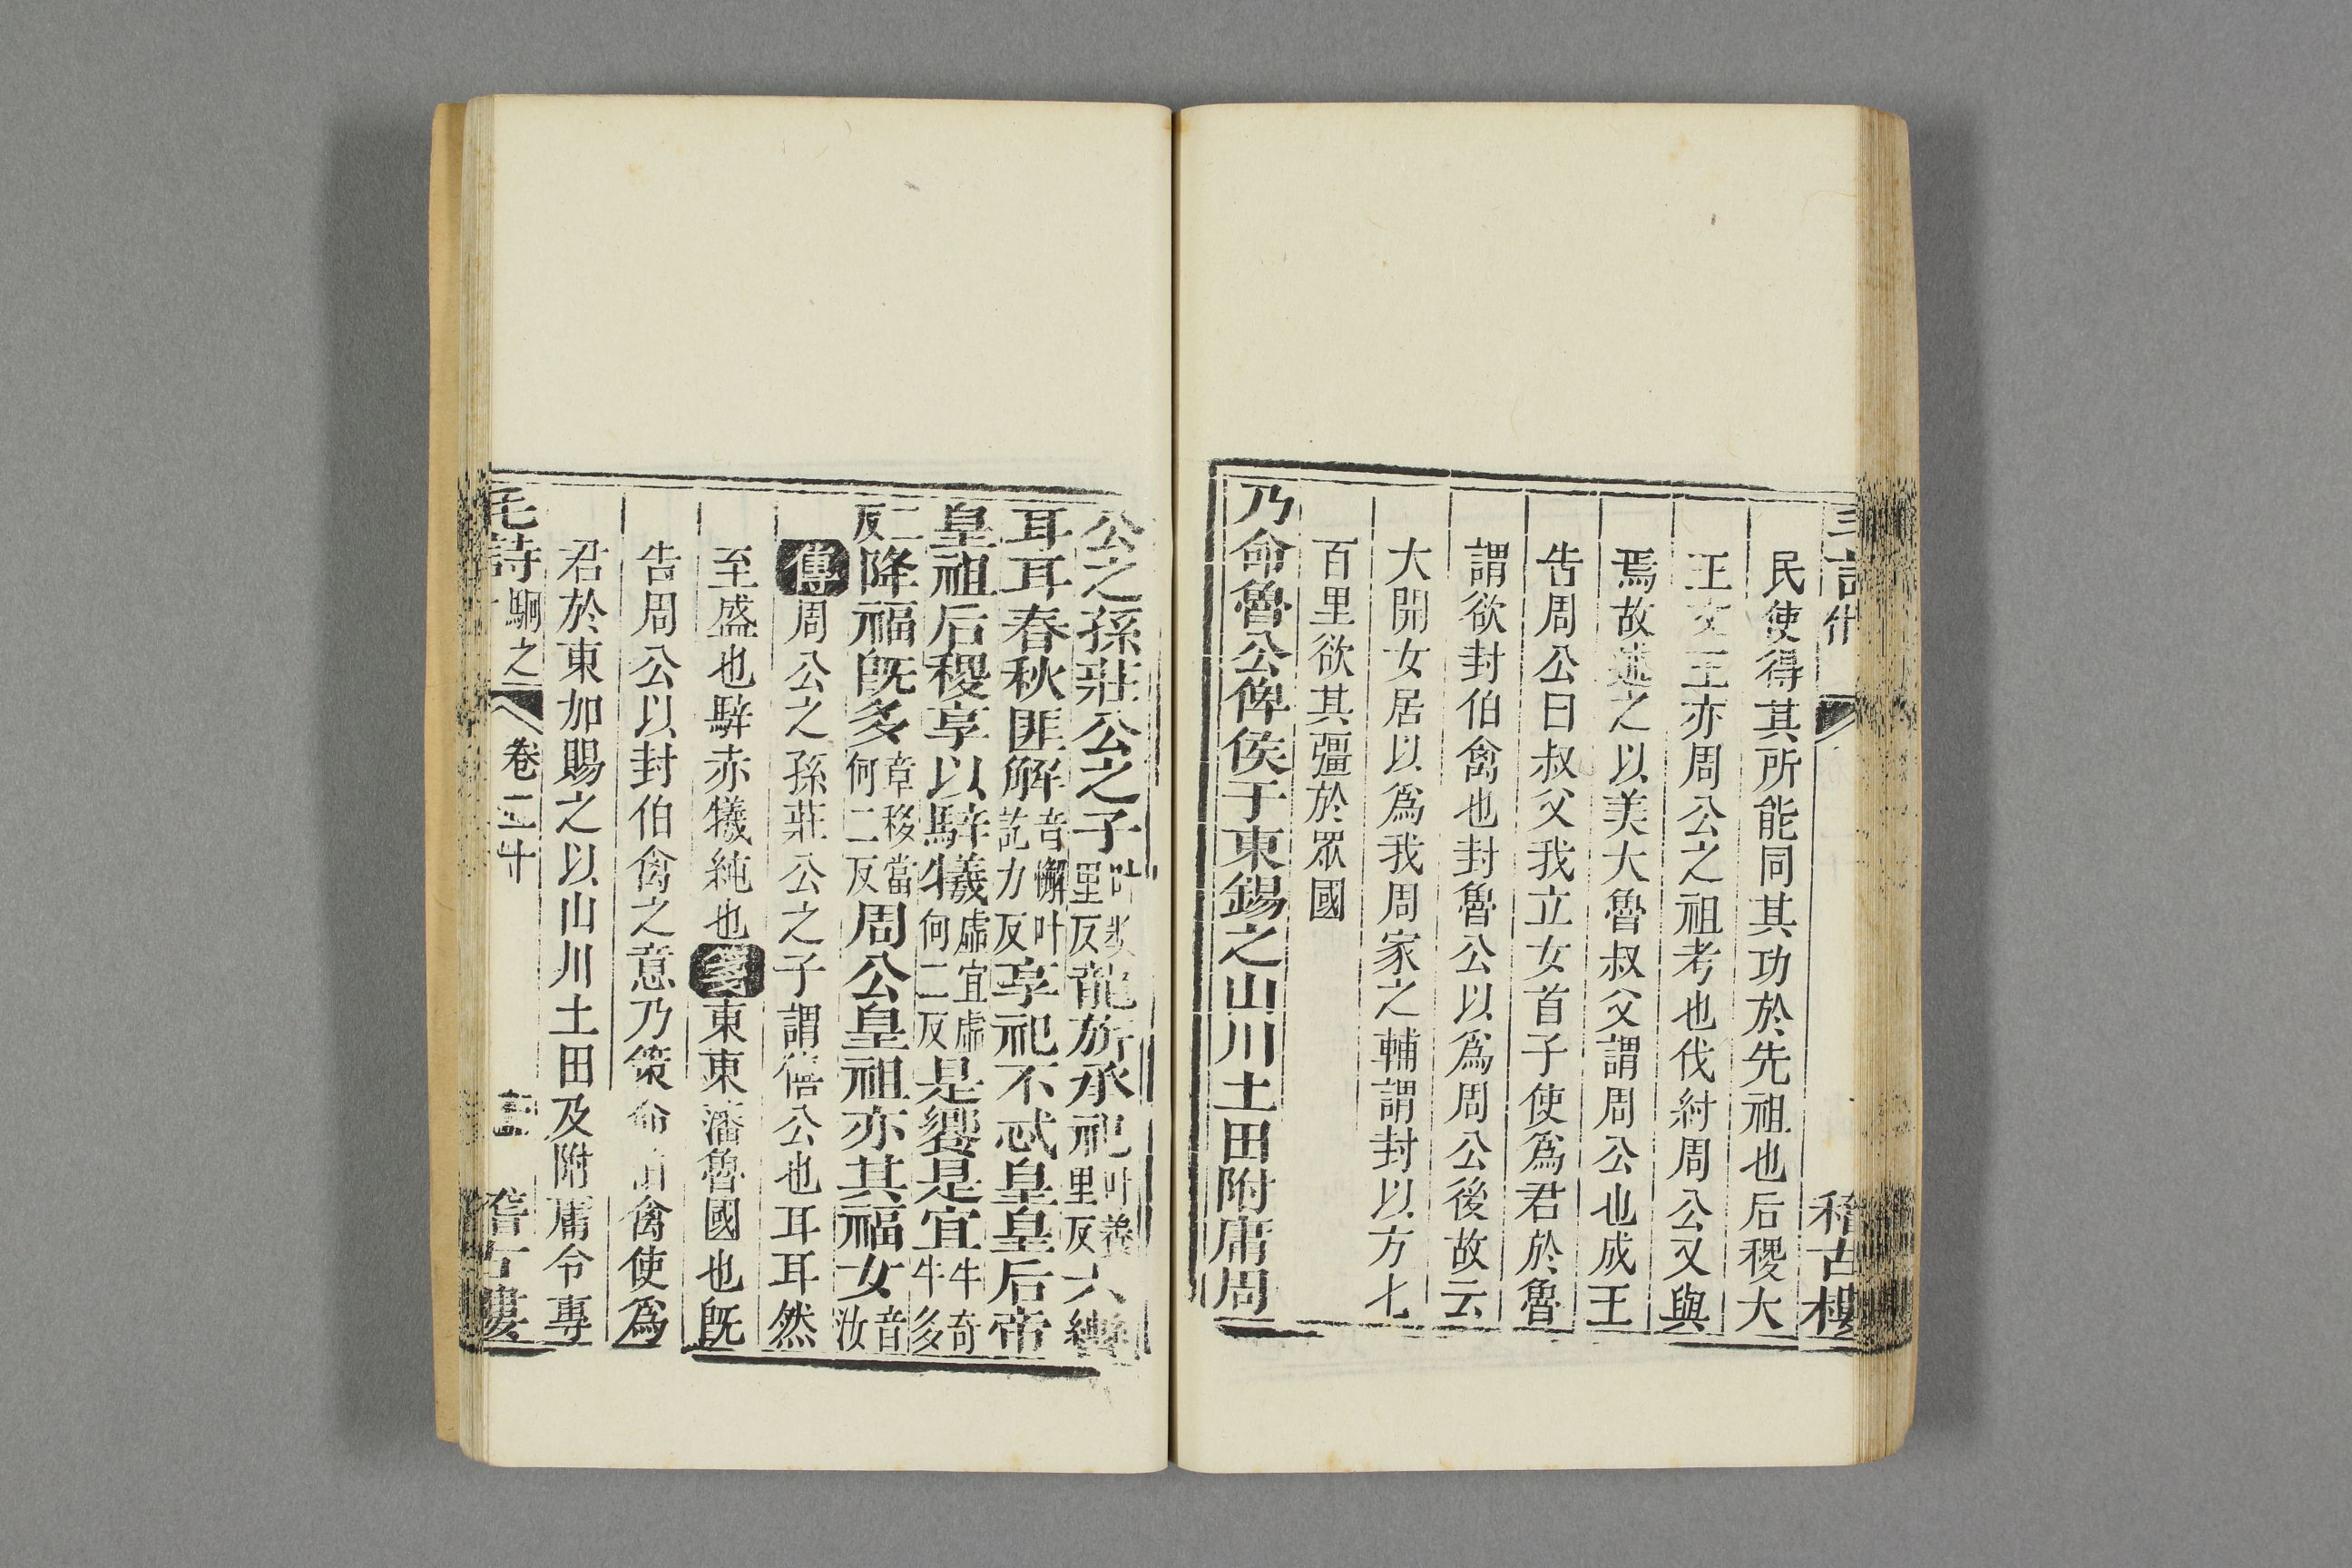 民使得其所能同其功於先祖也后稷大
王文王亦周公之祖考也伐紂周公又與
焉故述之以美大魯叔父謂周公也成王
告周公曰叔父我立女首子使爲君於魯
謂欲封伯禽也封魯公以爲周公後故云
大開女居以爲我周家之輔謂封以方七
百里欲其彊於眾國
乃命魯公俾侯于東錫之山川土田附庸周
稽古樓
公之孫莊公之子叶奖里反龍旂承祀叶養里反六轡
耳耳春秋匪解音懈叶訖力反享祀不忒皇皇后帝
皇祖后稷享以騂犧虛宜虛何二反是饗是宜牛奇牛多
二反降福旣多章移當何二反周公皇祖亦其福女音汝
傳周公之孫莊公之子謂僖公也耳耳然
至盛也騂赤犧純也箋東東藩魯國也旣
告周公以封伯禽之意乃策命伯禽使爲
君於東加賜之以山川土田及附庸令專
毛詩駉之 卷二十 稽古樓